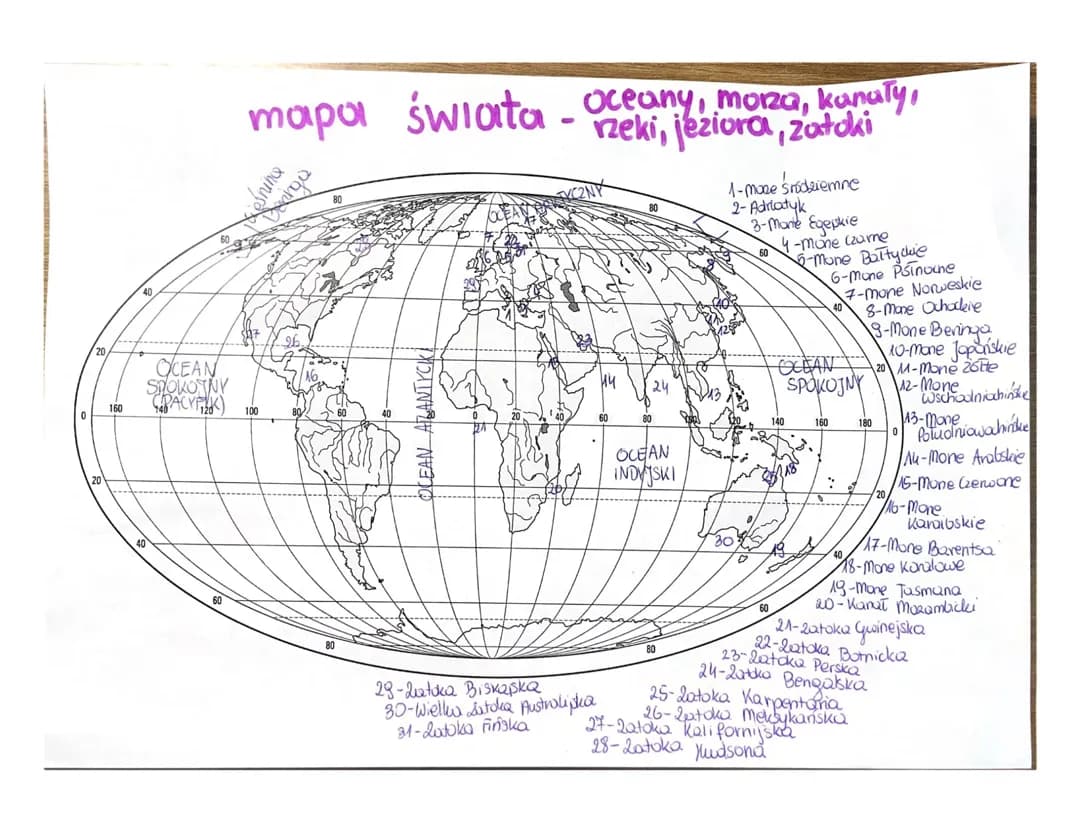 mapa świata - oceany, morza, kanały,
rzeki, jeziora, zatoki
Cieśnina
Beringa
OCEAN ARKTYCZNY
OCEAN
SPOKOJNY
(PACYFIK)
OCEAN ATLANTYCKI
OCEAN
INDYJSKI
OCEAN
SPOKOJNY
80
80
60
60
40
40
20
20
0
160
140
120
100
80
60
40
20
0
20
40
60
80
100
120
140
160
180
0
20
20
40
40
60
60
80
80
1-Morze śródziemne
2-Adriatyk
3-Morze Egejskie
4-Morze Czarne
5-Morze Bałtyckie
6-Morze Północne
7-Morze Norweskie
8-Morze Ochockie
9-Morze Beringa
10-Morze Japońskie
11-Morze żółte
12-Morze
Wschodniochińskie
13-Morze
Południowochińskie
14-Morze Arabskie
15-Morze Czerwone
16-Morze
Karaibskie
17-Morze Barentsa
18-Morze Koralowe
19-Morze Tasmana
20-Kanał Mozambicki
21-Zatoka Gwinejska
22-Zatoka Botnicka
23-Zatoka Perska
24-Zatoka Bengalska
25-Zatoka Karpentaria
26-Zatoka Meksykańska
27-Zatoka Kalifornijska
28-Zatoka Hudsona
29-Zatoka Biskajska
30-Wielka Zatoka Australijska
31-Zatoka Fińska